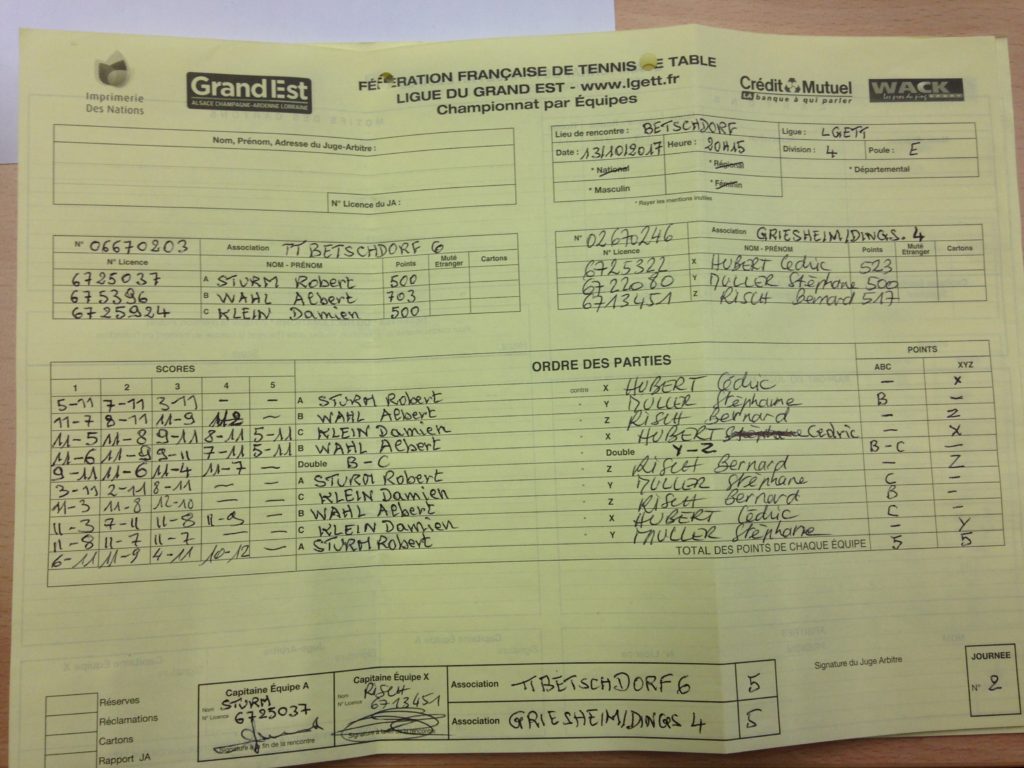 FÉDÉRATION FRANÇAISE DE TENNIS DE TABLE
LIGUE DU GRAND EST - www.lgett.fr
Championnat par Équipes
Imprimerie
Des Nations
Grand Est
ALSACE CHAMPAGNE-ARDENNE LORRAINE
Crédit Mutuel
LA banque à qui parler
WACK
Nom, Prénom, Adresse du Juge-Arbitre :
N° Licence du JA :
Lieu de rencontre : BETSCHDORF Ligue : LGETT
Date : 13/10/2017 Heure : 20H15 Division : 4 Poule : E
* National * Régional * Départemental
* Masculin * Féminin
* Rayer les mentions inutiles
N° 06670203 Association TT BETSCHDORF 6
N° Licence NOM - PRÉNOM Points Muté Etranger Cartons
6725037 A STURM Robert 500
675396 B WAHL Albert 703
6725924 C KLEIN Damien 500
N° 02670246 Association GRIESHEIM/DINGS. 4
N° Licence NOM - PRÉNOM Points Muté Etranger Cartons
6725322 X HUBERT Cédric 523
6722080 Y MULLER Stéphane 500
6713451 Z RISCH Bernard 517
SCORES ORDRE DES PARTIES POINTS
1 2 3 4 5 ABC XYZ
5-11 7-11 3-11 — — A STURM Robert contre X HUBERT Cédric — X
11-7 8-11 11-9 11-2 — B WAHL Albert - Y MULLER Stéphane B —
11-5 11-8 9-11 8-11 5-11 C KLEIN Damien - Z RISCH Bernard — Z
11-6 11-9 9-11 7-11 5-11 B WAHL Albert - X HUBERT Cedric — X
9-11 11-6 11-4 11-7 — Double B-C - Double Y-Z B-C —
3-11 2-11 8-11 — — A STURM Robert - Z RISCH Bernard — Z
11-3 11-8 12-10 — — C KLEIN Damien - Y MULLER Stéphane C —
11-3 7-11 11-8 11-9 — B WAHL Albert - Z RISCH Bernard B —
11-8 11-7 11-7 — — C KLEIN Damien - X HUBERT Cédric C —
6-11 11-9 4-11 10-12 — A STURM Robert - Y MULLER Stéphane — Y
TOTAL DES POINTS DE CHAQUE ÉQUIPE 5 5
Réserves
Réclamations
Cartons
Rapport JA
Capitaine Équipe A
Nom STURM
N° Licence 6725037
Signature à la fin de la rencontre
Capitaine Équipe X
Nom RISCH
N° Licence 6713451
Signature à la fin de la rencontre
Association TT BETSCHDORF 6 5
Association GRIESHEIM/DINGS 4 5
Signature du Juge Arbitre
JOURNEE
N° 2